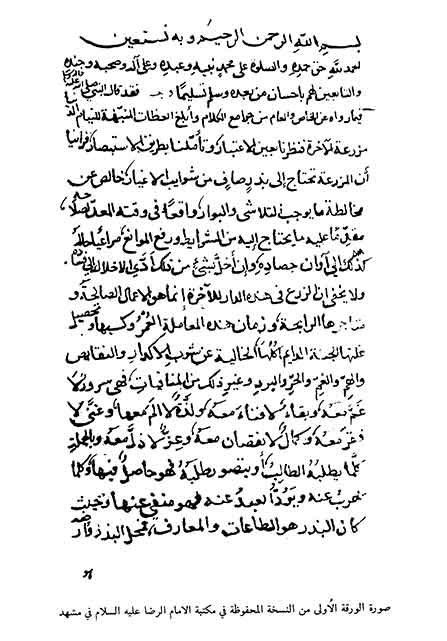 بسم الله الرحمن الرحيم وبه نستعين
الحمد لله حق حمده والصلوة على محمد نبيه وعبده وعلى آله وصحبه وجنده
والتابعين لهم باحسان من بعده وسلم تسليما فقد قال النبي صلى الله عليه
فيما رواه عن الخاص والعام من جوامع الكلام وأبلغ العظات المنبهة للنيام الدنيا
مزرعة الآخرة فنظرنا بعين الاعتبار وتأملنا بطريق الاستبصار فرأينا
أن المزرعة تحتاج إلى بذر صاف من شوايب الاغيار خالص عن
مخالطة ما يوجب التلاشي والبوار واقعا في وقته المعد لصلاحه
ما يحتاج إليه من الشرايط ورفع الموانع مراعيا حاله
كذلك إلى أوان حصاده وإن أخل بشيء من ذلك أدى الاخلال إلى فساده
ولا يخفى ان الزرع في هذه الدار للآخرة إنما هو الاعمال الصالحة و
متاجرها الرابحة وزمان هذه المعاملة العمر وكسبها وتحصيل
غلتها الجنة الدايم أكلها الخالية عن شوب الاكدار والنقايص
والهم والغم والحر والبرد وغير ذلك من المنافيات فهي سرور لا
غم معه وبقاء لا فناء معه ولذة لا الم معها وغنى لا
فقر معه وكمال لا نقصان معه وعز لا ذل معه وبالجملة
كلما يطلبه الطالب أو يتصور طلبه فهو حاصل فيها وكلما
يهرب عنه ويود البعد عنه فهو منفي عنها وحيث
كان البذر هو الطاعات والمعارف فمحل البذر وارضه
صورة الورقة الأولى من النسخة المحفوظة في مكتبة الامام الرضا عليه السلام في مشهد